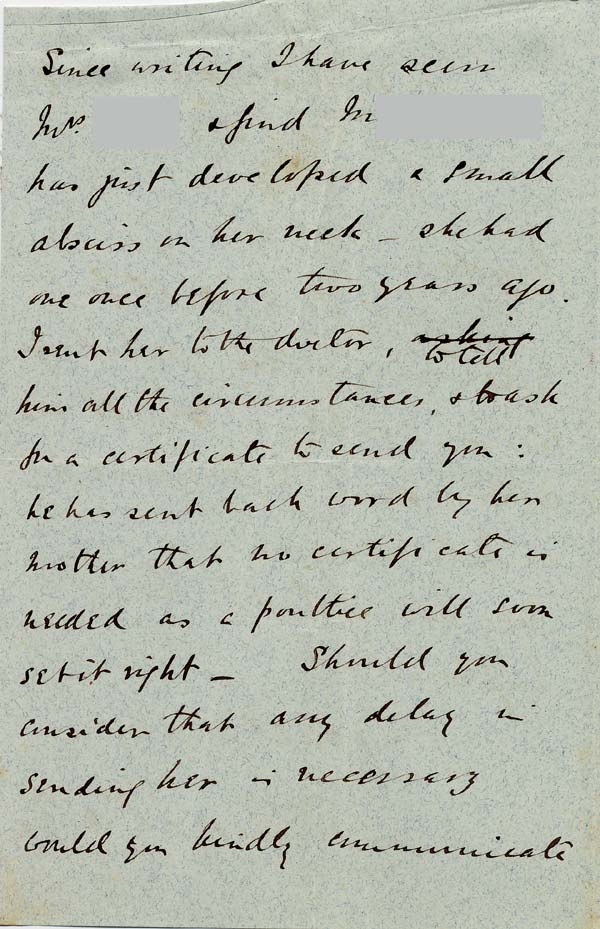 Since writing I have seen
Mrs & find M
has just developed a small
absciss on her neck – she had
one once before two years ago.
I sent her to the doctor, asking to tell
him all the circumstances, & to ask
for a certificate to send you :
he has sent back word by her
mother that no certificate is
needed as a poultice will soon
set it right – Should you
consider that any delay in
sending her is necessary
would you kindly communicate